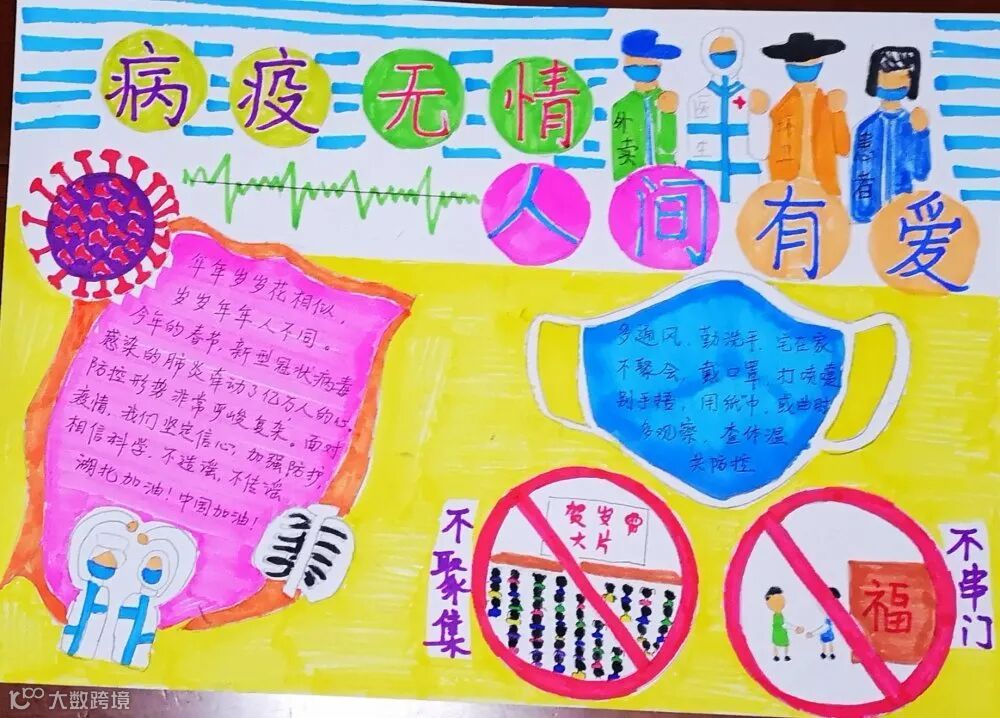 病疫无情
外卖
医生
环卫
患者
人间有爱
年年岁岁花相似，
岁岁年年人不同。
今年的春节，新型冠状病毒
感染的肺炎牵动了亿万人的心，
防控形势非常严峻复杂。面对
疫情，我们坚定信心，加强防护
相信科学，不造谣，不传谣
湖北加油！中国加油！
多通风，勤洗手，宅在家
不聚会，戴口罩，打喷嚏
别手捂，用纸巾，或曲肘
多观察，查体温
共防控
不聚集
贺岁
大片
福
不串门
大数跨境